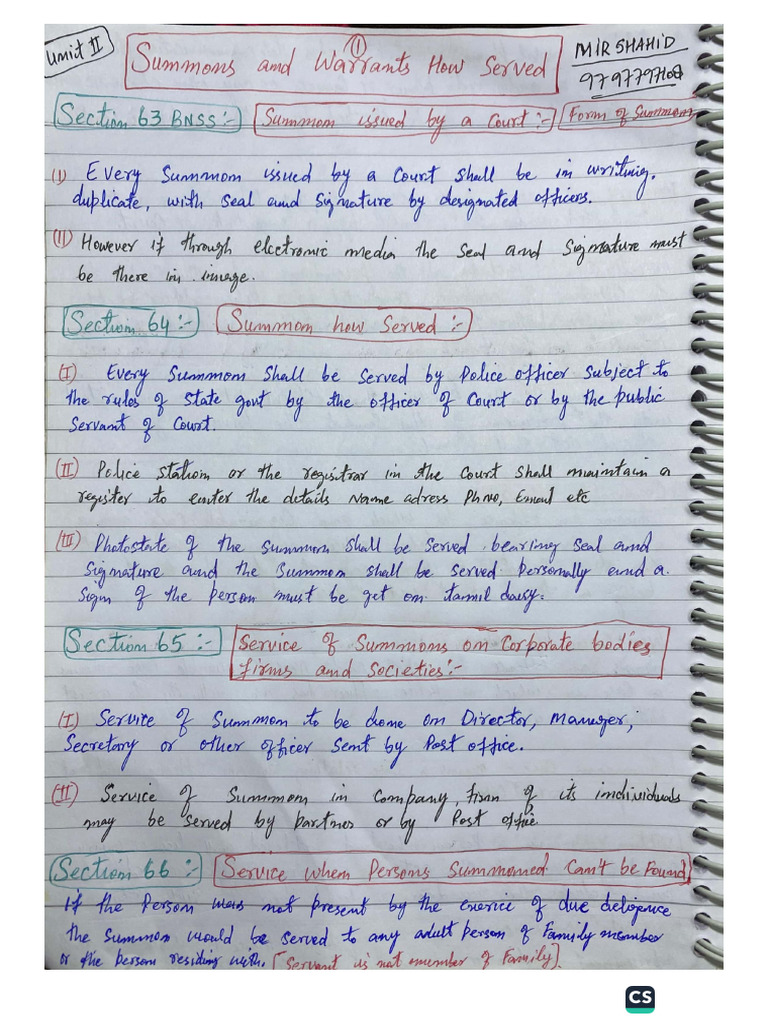 Unit II
①
Summons and Warrants How Served
MIR SHAHID
9797797108
Section 63 BNSS:- Summon issued by a Court:- Form of Summon
(I) Every Summon issued by a Court shall be in writing,
duplicate, with seal and signature by designated officers.
(II) However if through electronic media the seal and Signature must
be there in image.
Section 64:- Summon how Served:-
(I) Every Summon shall be served by Police officer subject to
the rules of State govt by the officer of Court or by the public
Servant of Court.
(II) Police Station or the registrar in the Court shall maintain a
register to enter the details Name adress Ph no, Email etc
(III) Photostate of the Summon shall be served bearing seal and
Signature and the Summon shall be served Personally and a
Sign of the Person must be get on
Section 65:- Service of Summons on Corporate bodies
firms and Societies:-
(I) Service of Summon to be done on Director, Manager,
Secretary or other officer sent by Post office.
(II) Service of Summon in Company, firm of its individuals
may be served by partner or by Post office
Section 66:- Service when Persons Summoned Can't be Found
If the Person was not present by the exercise of due deligence
the Summon would be served to any adult person of Family member
or the person residing with. [Servant is not member of Family].
CS